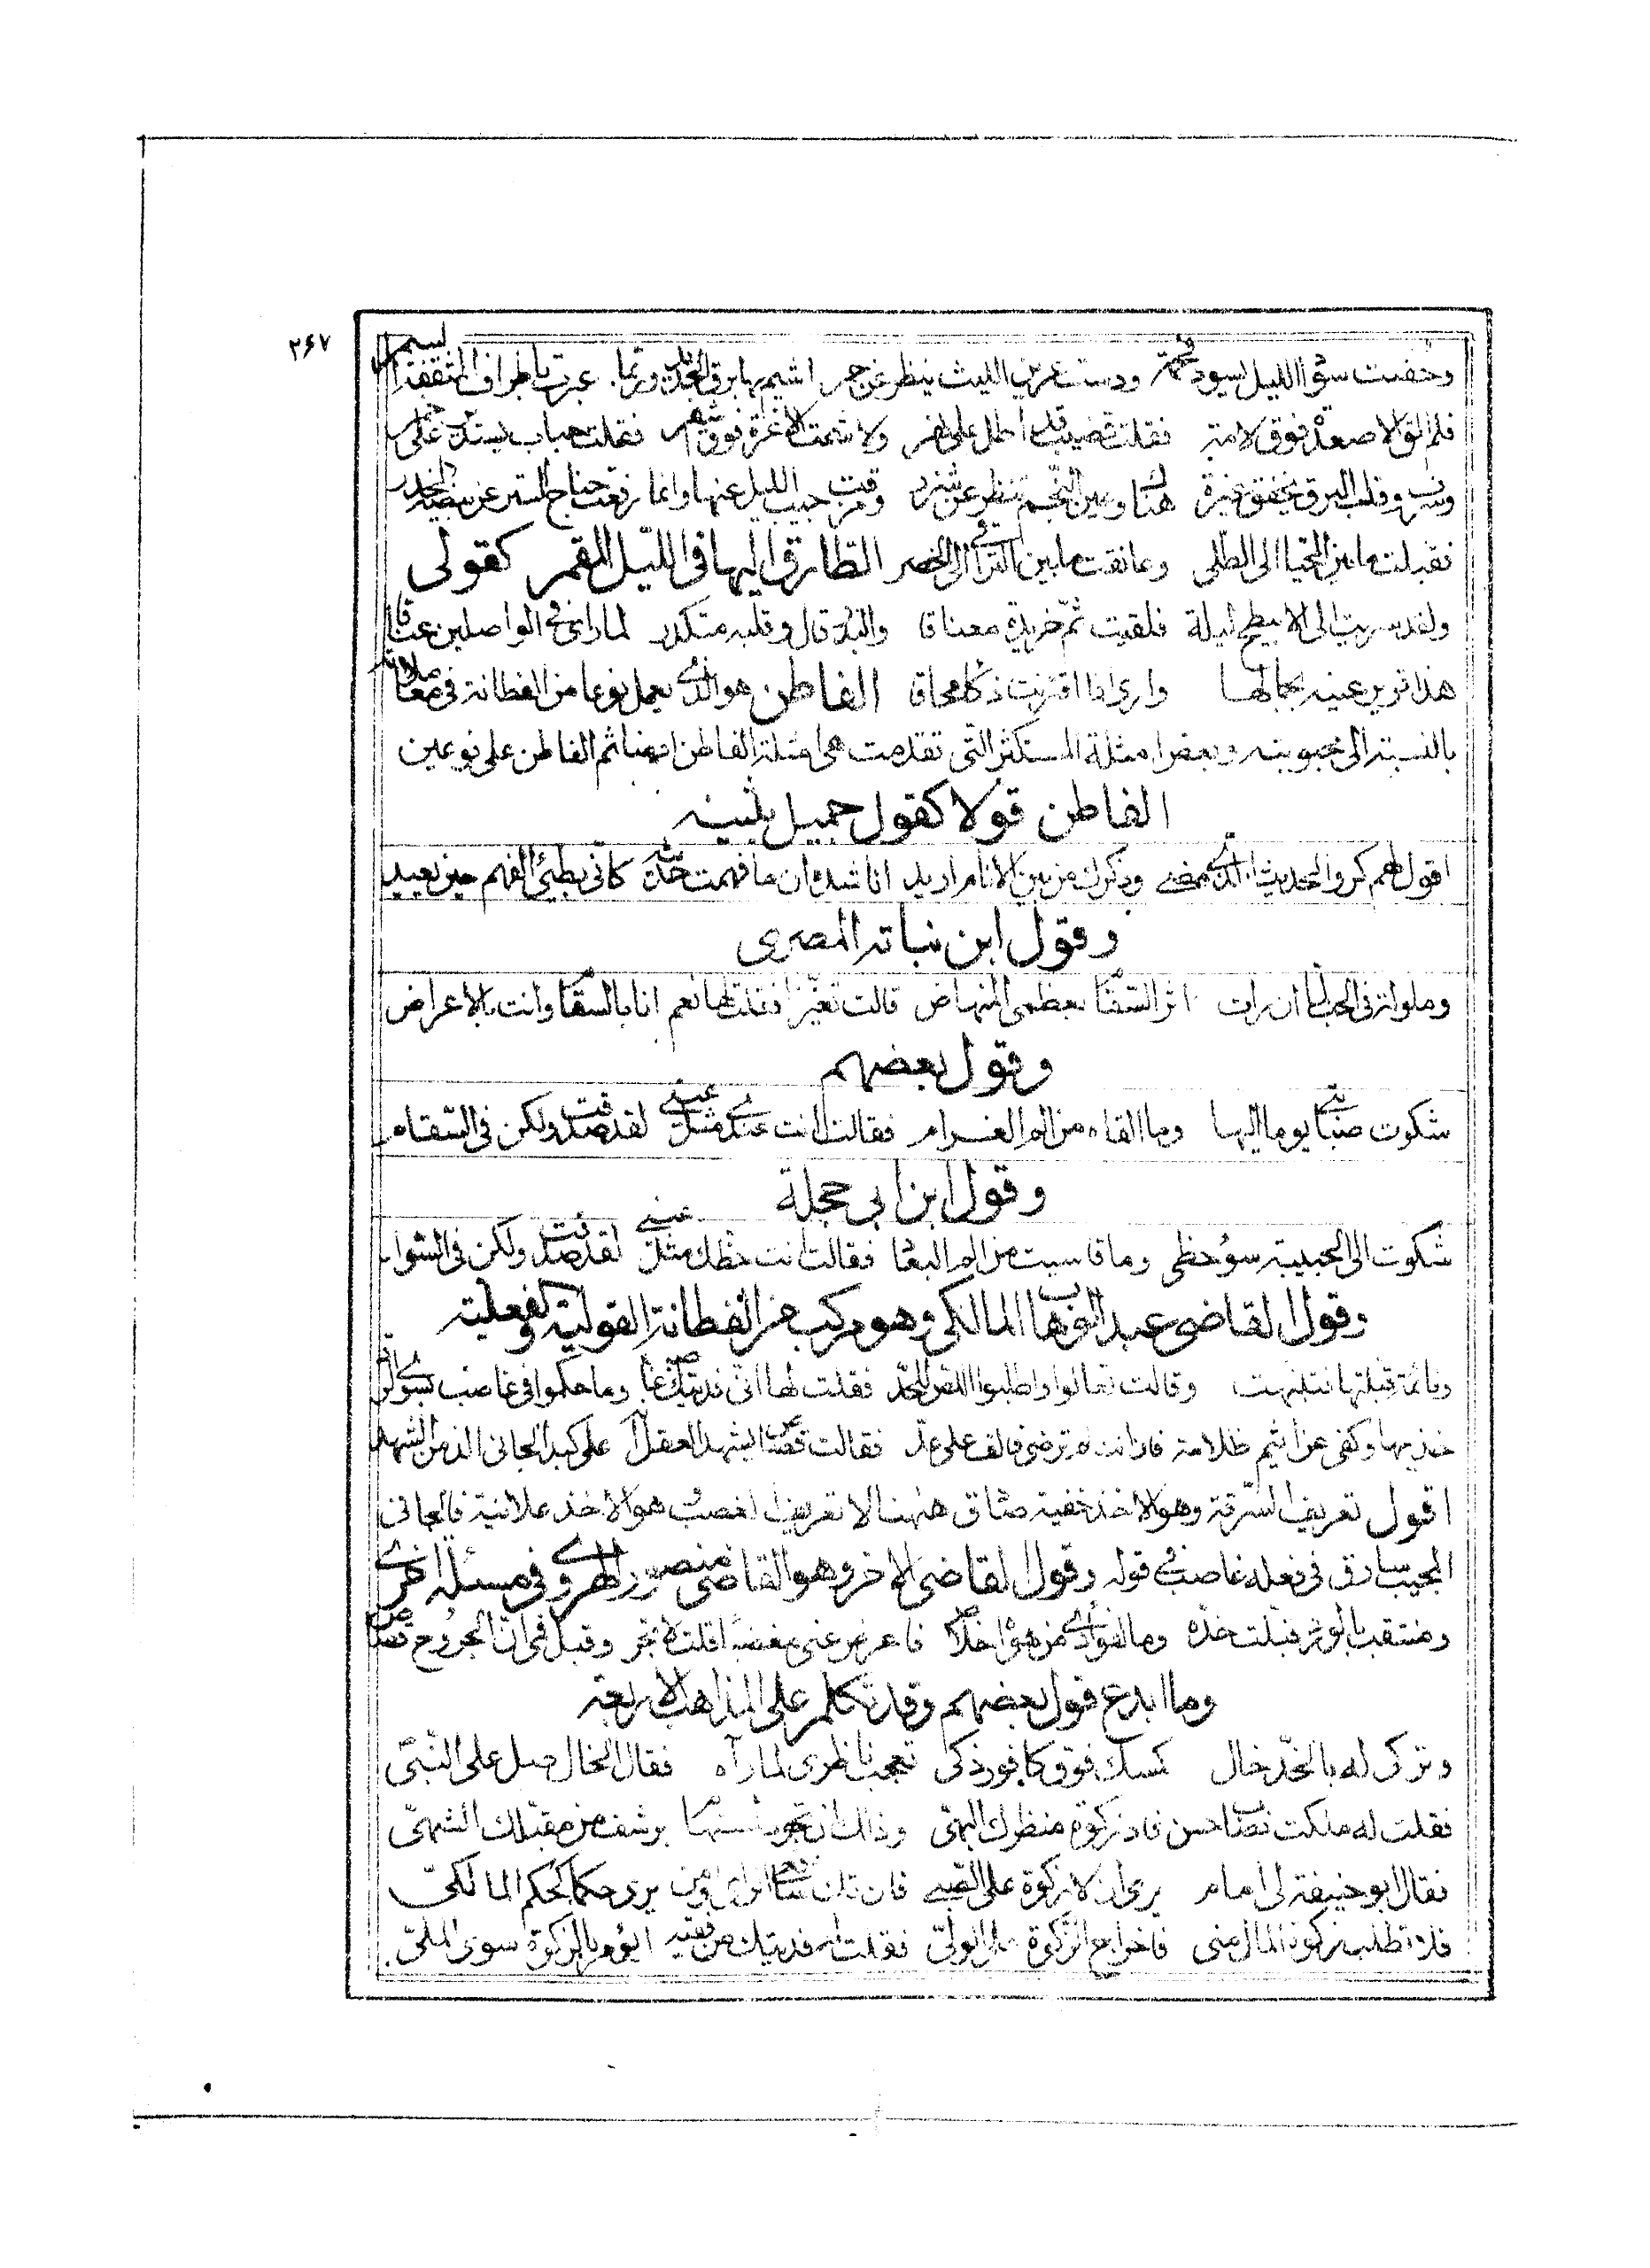 ٢۶٧
وخضت سواد الليل يسود فحمه ودست عرين الليث ينظر عن جمر اشيم بها برق الحديد وربما عبرت باطراف المثقفة السمر
فلم الق الا صعدة فوق لامة فقلت قضيب قد اطل على نهر ولا شمت الا غرة فوق اشهر فقلت حباب يستدير على خمر
وسرت وقلب البرق يخفق غيرة هناك وعين النجم تنظر عن شزر جيب الليل عنها وانما رفعت جناح الستر عن بيضة الخدر
فقبلت ما بين المحيا الى الطلى وعانقت ما بين التراقي الى الخصر الطارق اليها في الليل المقمر كقولى
ولقد سريت الى الابيطح ليلة فلقيت ثم خريدة معناقا والبدر قال وقلبه متكدر لما رانى فى الواصلين عناقا
هذا قرير عينه بجمالها وارى اذا اقتربت ذكاء محاق الفاطن هو الذى يعمل نوعا من الفطانة فى معاملاته
بالنسبة الى محبوبته وبعض امثلة المستكثر التى تقدمت هى امثلة الفاطن ايضا ثم الفاطن على نوعين
الفاطن قولا كقول جميل بثينه
اقول لهم كروا الحديث الذى مضى وذكرك من بين الانام اريد اناشده ان ما فهمت حديثه كانى بطيئ الفهم حين يعيد
وقول ابن نباته المصرى
وملولة فى الحب لما أن رات اثر السقام بعظمى المنهاض قالت تغير افقلت لها نعم انا بالسقام وانت بالاعراض
وقول بعضهم
شكوت صبابتى يوما اليها وما القاه من الم الغرام فقالت انت عندى مثل عينى لقد صدقت ولكن فى السقام
وقول ابن ابى حجلة
شكوت الى الحبيبة سوء حظى وما قاسيت من الم البعاد فقالت انت حظك مثل عينى لقد صدقت ولكن فى السواد
وقول القاضى عبد الوهاب المالكى وهو مركب من الفطانة القولية والفعلية
ونائمة قبلتها فتنبهت وقالت تعالوا واطلبوا اللص بالحد فقلت لها انى فديتك غاصب وما حكموا فى غاصب بسوى الرد
خذيها وكفى عن اثيم ظلامة فان انت لم ترضى فالف على عد فقالت قصاص يشهد العقل انه على كبد الجانى الذ من الشهد
اقول تعريف السرقة وهو الاخذ خفية صادق ههنا لا تعريف الغصب هو الاخذ علانية فالجانى
المجيب سارق فى فعله غاصب فى قوله وقول القاضى الاخر وهو القاضى منصور الهروى فى مسئلة اخرى
ومنتقب بالورد قبلت خده وما لفؤادى من هواه خلاص فاعرض عنى مغضبا قلت لا تجر وقبل فمى ان الجروح قصاص
وما ابدع قول بعضهم وقد تكلم على المذاهب الاربعة
وتركى له بالخد خال كمسك فوق كافور ذكى تعجب ناظرى لما رآه فقال الخال صل على النبى
فقلت له ملكت نصاب حسن فاد زكوة منظرك البهى وذلك ان تجود برشف من مقبلك الشهى
فقال ابو حنيفة لى امام يرى ان لا زكوة على الصبى فان تك يرى حكما كحكم المالكى
فلا تطلب زكوة المال منى فاخراج الزكوة على الولى فقلت له فديتك من فقيه بالزكوة سوى الملى